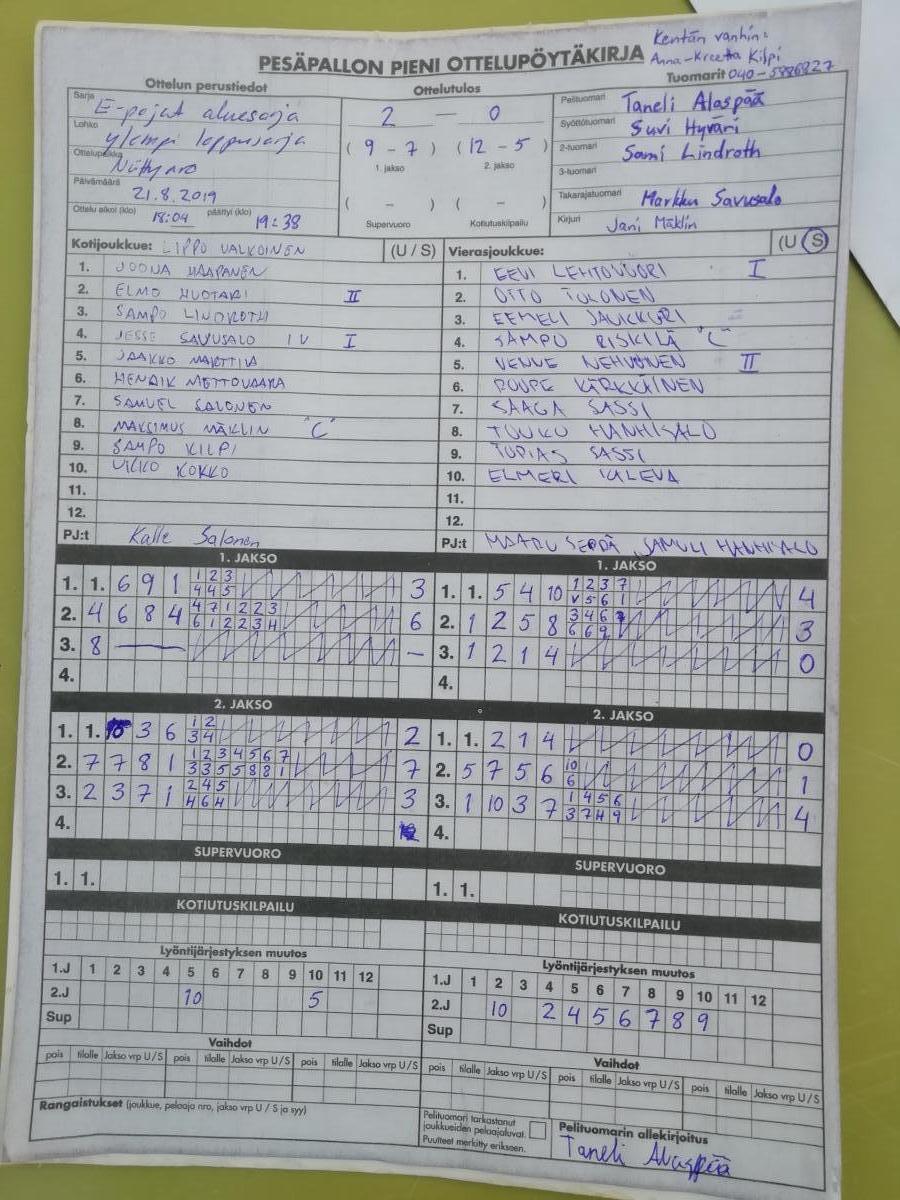 PESÄPALLON PIENI OTTELUPÖYTÄKIRJA
Kentän vanhin:
Anna-Kreetta Kilpi
Ottelun perustiedot
Ottelutulos
Tuomarit 040-5886827
Sarja E-pojat aluesarja
Lohko ylempi loppusarja
Ottelupaikka
Päivämäärä 21.8.2019
Ottelu alkoi (klo) 18:04 päättyi (klo) 19:38
2 — 0
( 9 - 7 ) ( 12 - 5 )
1. jakso 2. jakso
( - ) ( - )
Supervuoro Kotiutuskilpailu
Pelituomari Taneli Alaspää
Syöttötuomari Suvi Hyväri
2-tuomari Sami Lindroth
3-tuomari
Takarajatuomari Markku Savusalo
Kirjuri Jani Mäklin
Kotijoukkue: LIPPO VALKOINEN (U / S)
1. JOONA HAAPANEN
2. ELMO HUOTARI II
3. SAMPO LINDROTH
4. JESSE SAVUSALO IV I
5. JAAKKO MARTTILA
6. HENRIK METTOVAARA
7. SAMUEL SALONEN
8. MAKSIMUS MÄKLIN "C"
9. SAMPO KILPI
10. VILKO KOKKO
11.
12.
PJ:t Kalle Salonen
Vierasjoukkue: (U / S)
1. EEVI LEHTOVUORI I
2. OTTO TOLONEN
3. EEMELI JAUKKURI
4. SAMPO RISKILÄ "C"
5. VENNE NEHVONEN II
6. ROOPE KÄRKKÄINEN
7. SAAGA SASSI
8. TOUKO HANHISALO
9. TOPIAS SASSI
10. ELMERI KALEVA
11.
12.
PJ:t SAMULI HANHISALO
1. JAKSO
1. 1. 6 9 1 1 2 3 3
4 4 5
2. 4 6 8 4 4 7 1 2 2 3 6
6 1 2 2 3 4
3. 8 — —
4.
1. JAKSO
1. 1. 5 4 10 1 2 3 7 4
V 5 6 1
2. 1 2 5 8 3 4 6 3
6 6 9
3. 1 2 1 4 0
4.
2. JAKSO
1. 1. 3 6 1 2 2
3 4
2. 7 7 8 1 1 2 3 4 5 6 7 7
3 3 5 5 8 8 1
3. 2 3 7 1 2 4 5 3
4 6 4
4.
2. JAKSO
1. 1. 2 1 4 0
2. 5 7 5 6 10 1
6
3. 1 10 3 7 1 4 5 6 4
3 7 4 9
4.
SUPERVUORO
1. 1.
SUPERVUORO
1. 1.
KOTIUTUSKILPAILU
KOTIUTUSKILPAILU
Lyöntijärjestyksen muutos
1.J 1 2 3 4 5 6 7 8 9 10 11 12
2.J 10 5
Sup
Lyöntijärjestyksen muutos
1.J 1 2 3 4 5 6 7 8 9 10 11 12
2.J 10 2 4 5 6 7 8 9
Sup
Vaihdot
pois tilalle Jakso vrp U / S pois tilalle Jakso vrp U / S pois tilalle Jakso vrp U / S
Vaihdot
pois tilalle Jakso vrp U / S pois tilalle Jakso vrp U / S pois tilalle Jakso vrp U / S
Rangaistukset (joukkue, pelaaja nro, jakso vrp U / S ja syy)
Pelituomari tarkastanut
joukkueiden pelaajaluvat.
Puutteet merkitty erikseen.
Pelituomarin allekirjoitus
Taneli Alaspää